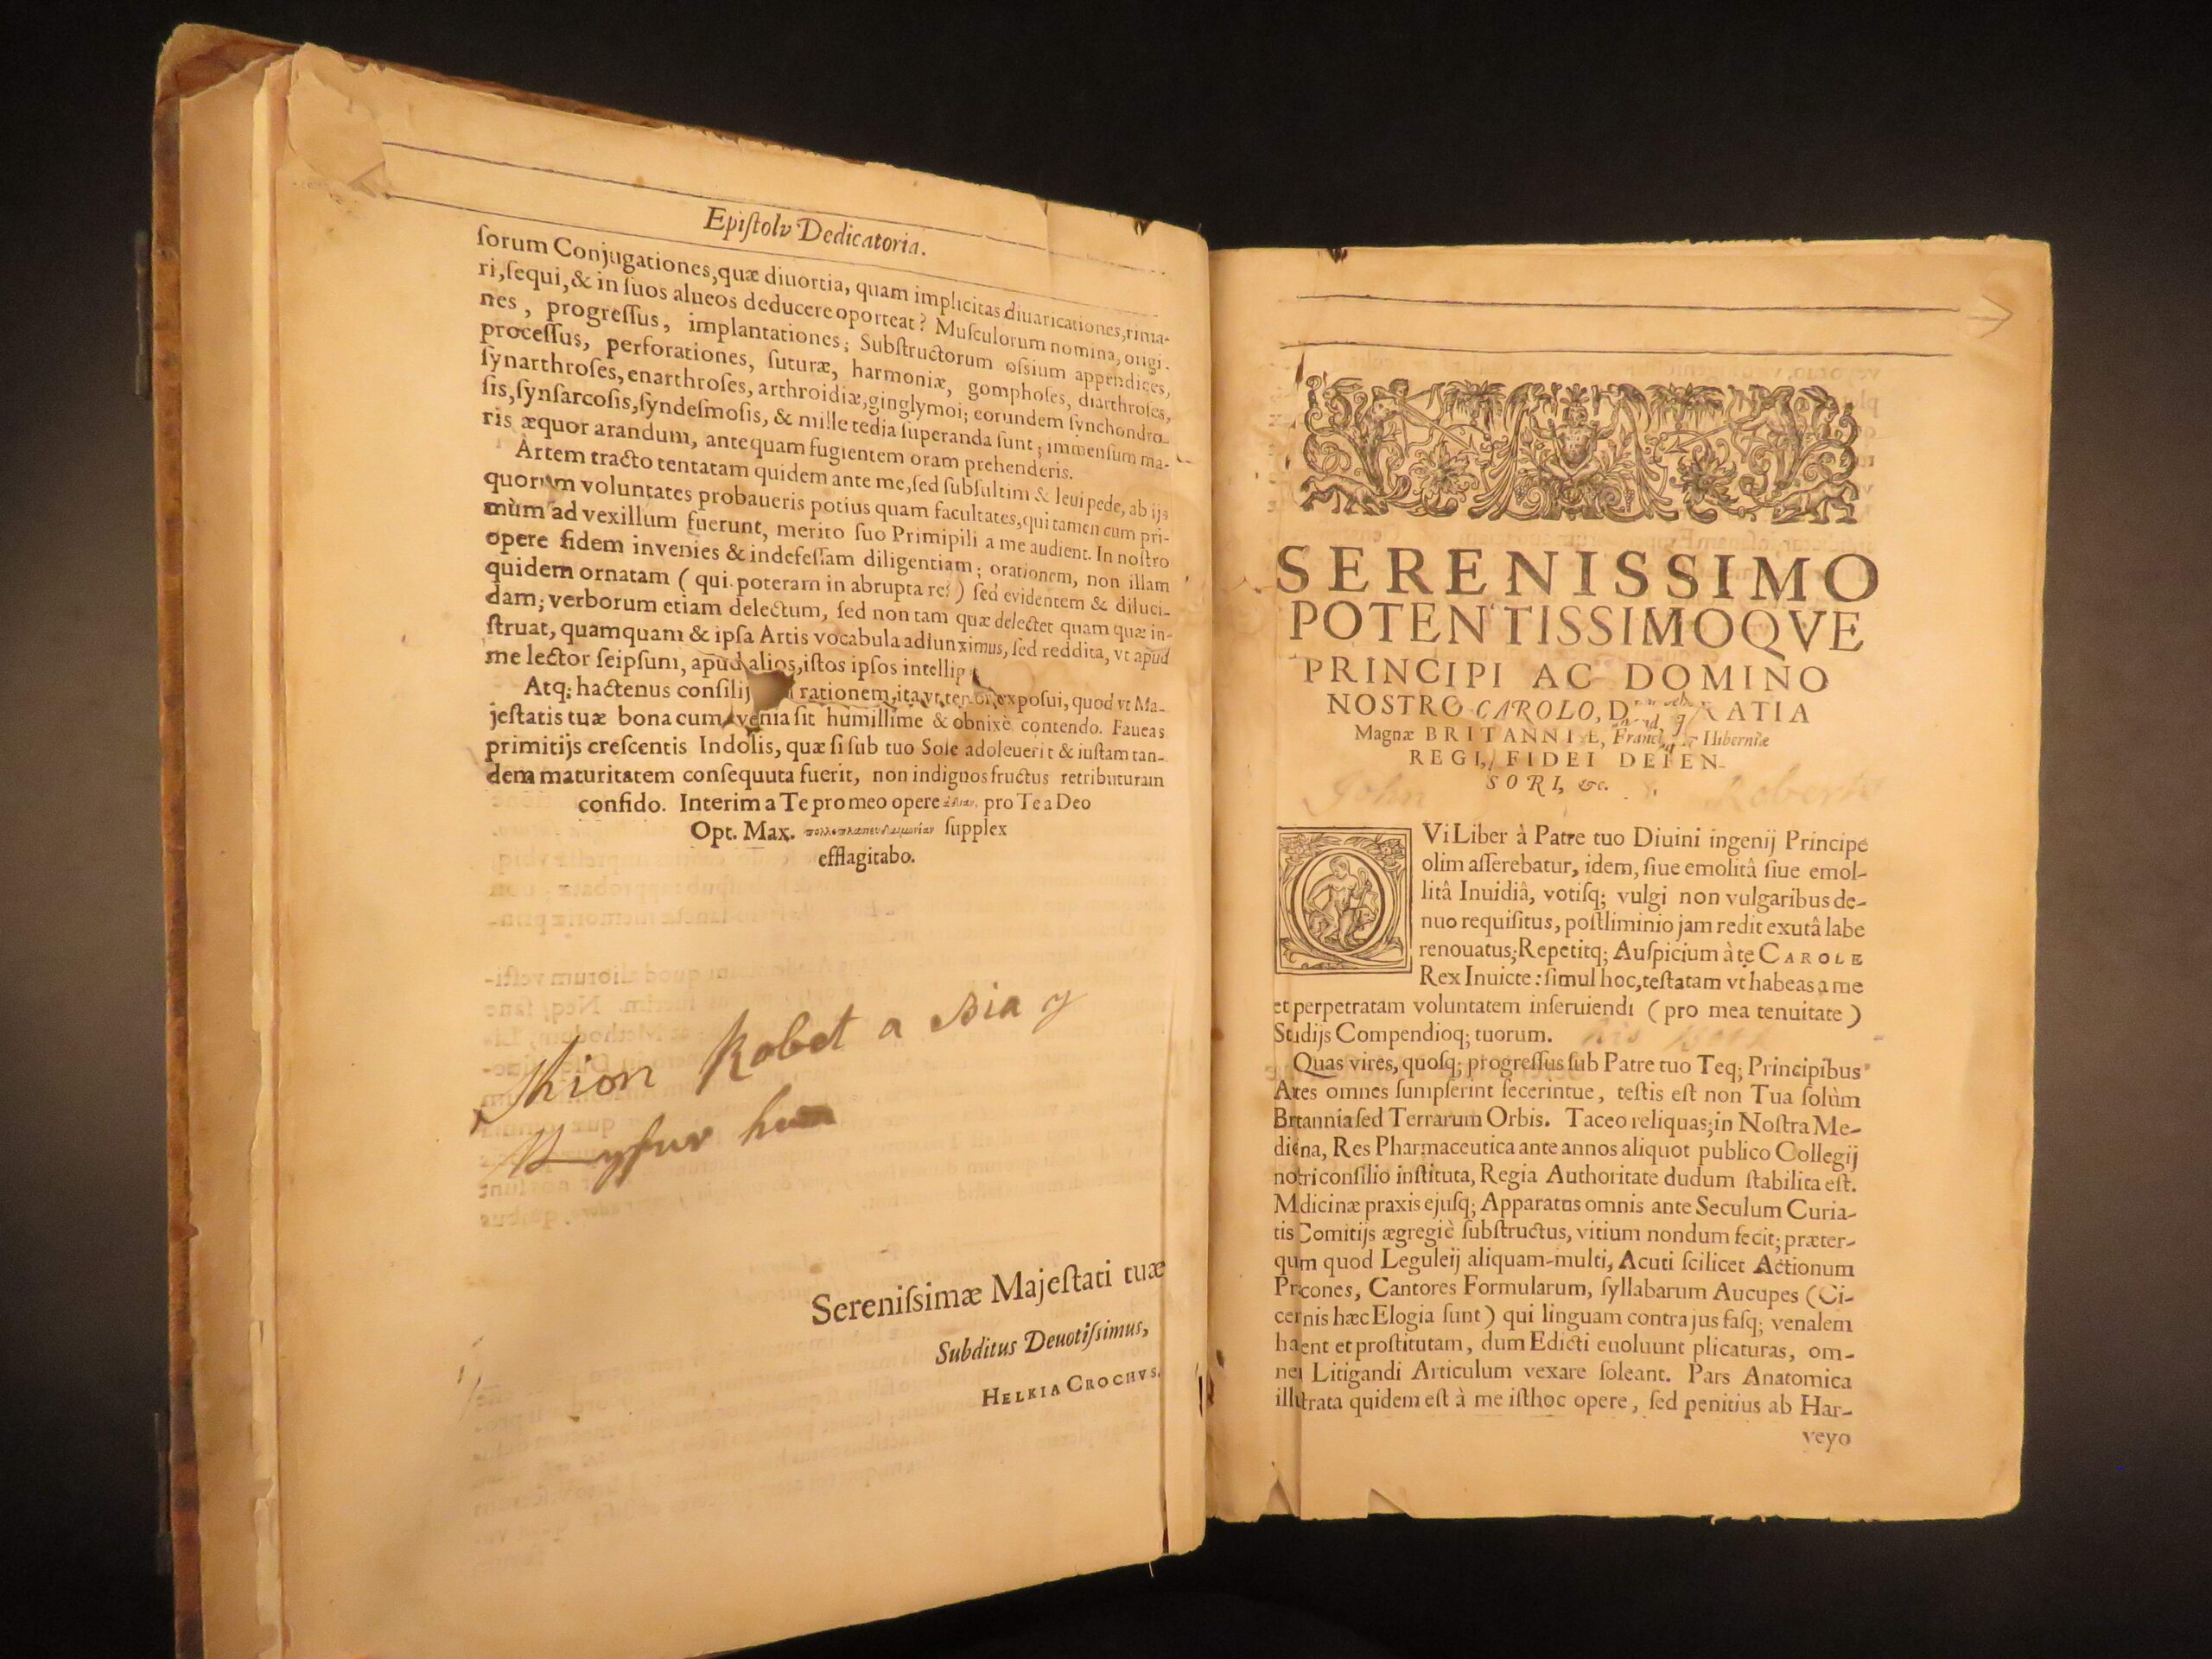 Epiſtolv Dedicatoria.
ſorum Conjugationes, quæ diuortia, quam implicitas diuaricationes, rima-
ri, ſequi, & in ſuos alueos deducere oporteat? Muſculorum nomina, origi-
nes, progreſſus, implantationes; Subſtructorum oſsium appendices,
proceſſus, perforationes, ſuturæ, harmoniæ, gomphoſes, diarthroſes,
ſynarthroſes, enarthroſes, arthroidiæ, ginglymoi; eorundem ſynchondro-
ſis, ſynſarcoſis, ſyndeſmoſis, & mille tedia ſuperanda ſunt; immenſum ma-
ris æquor arandum, antequam fugientem oram prehenderis.
Artem tracto tentatam quidem ante me, ſed ſubſultim & leui pede, ab ijs
quorum voluntates probaueris potius quam facultates, qui tamen cum pri-
mùm ad vexillum fuerunt, merito ſuo Primipili a me audient. In noſtro
opere fidem invenies & indefeſſam diligentiam; orationem, non illam
quidem ornatam (qui poteram in abrupta re?) ſed evidentem & diluci-
dam; verborum etiam delectum, ſed non tam quæ delectet quam quæ in-
ſtruat, quamquam & ipſa Artis vocabula adiunximus, ſed reddita, vt apud
me lector ſeipſum, apud alios, iſtos ipſos intellig
Atq; hactenus conſilij rationem, ita vt expoſui, quod vt Ma-
jeſtatis tuæ bona cum venia ſit humillime & obnixè contendo. Faueas
primitijs creſcentis Indolis, quæ ſi ſub tuo Sole adoleuerit & iuſtam tan-
dem maturitatem conſequuta fuerit, non indignos fructus retributuram
confido. Interim a Te pro meo opere pro Te a Deo
Opt. Max. ſupplex
efflagitabo.
Robet a
Sereniſsimæ Majeſtati tuæ
Subditus Deuotiſsimus,
HELKIA CROCHVS.
SERENISSIMO
POTENTISSIMOQVE
PRINCIPI AC DOMINO
NOSTRO CAROLO, D RATIA
Magnæ BRITANNIÆ, Hiberniæ
REGI, FIDEI DEFEN-
SORI, &c.
John Roberts
QVi Liber à Patre tuo Diuini ingenij Principe
olim aſſerebatur, idem, ſiue emolitâ ſiue emol-
litâ Inuidiâ, votiſq; vulgi non vulgaribus de-
nuo requiſitus, poſtliminio jam redit exutâ labe
renouatus; Repetitq; Auſpicium à te CAROLE
Rex Inuicte: ſimul hoc, teſtatam vt habeas a me
et perpetratam voluntatem inſeruiendi (pro mea tenuitate)
Studijs Compendioq; tuorum.
Quas vires, quoſq; progreſſus ſub Patre tuo Teq; Principibus
Artes omnes ſumpſerint fecerintue, teſtis eſt non Tua ſolùm
Brtannia ſed Terrarum Orbis. Taceo reliquas; in Noſtra Me-
dicina, Res Pharmaceutica ante annos aliquot publico Collegij
notri conſilio inſtituta, Regia Authoritate dudum ſtabilita eſt.
Mdicinæ praxis ejuſq; Apparatus omnis ante Seculum Curia-
tis Comitijs ægregiè ſubſtructus, vitium nondum fecit; præter-
qum quod Leguleij aliquam-multi, Acuti ſcilicet Actionum
Prcones, Cantores Formularum, ſyllabarum Aucupes (Ci-
cernis hæc Elogia ſunt) qui linguam contra jus faſq; venalem
haent et proſtitutam, dum Edicti euoluunt plicaturas, om-
nes Litigandi Articulum vexare ſoleant. Pars Anatomica
illuſtrata quidem eſt à me iſthoc opere, ſed penitius ab Har-
veyo